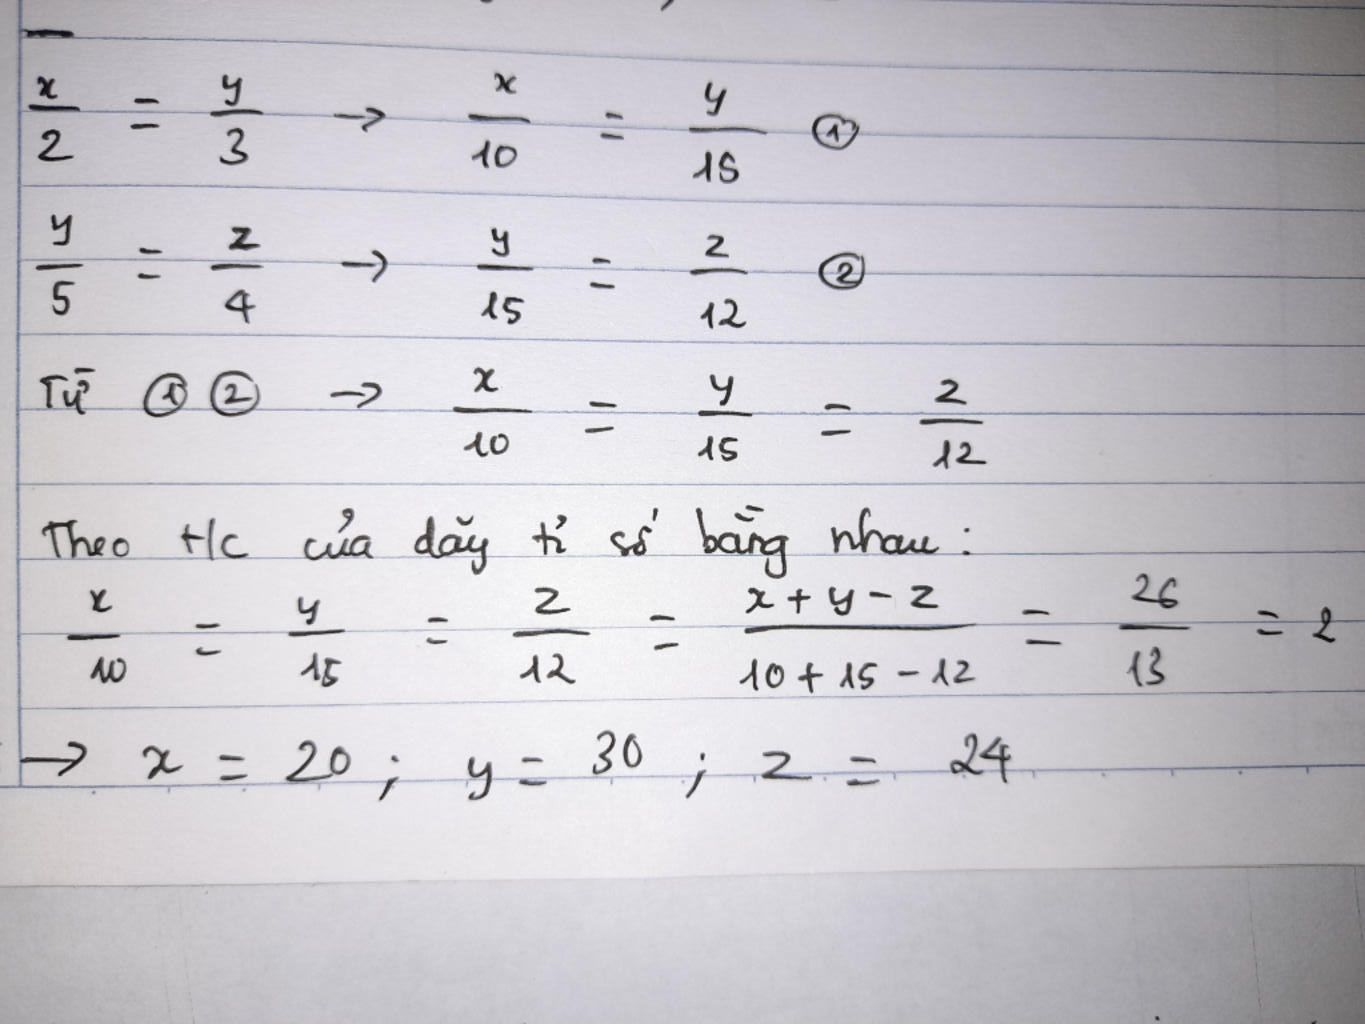 x/2 = y/3 → x/10 = y/15 ①
y/5 = z/4 → y/15 = z/12 ②
Từ ① ② → x/10 = y/15 = z/12
Theo t/c của dãy tỉ số bằng nhau :
x/10 = y/15 = z/12 = x + y - z/10 + 15 - 12 = 26/13 = 2
→ x = 20 ; y = 30 ; z = 24